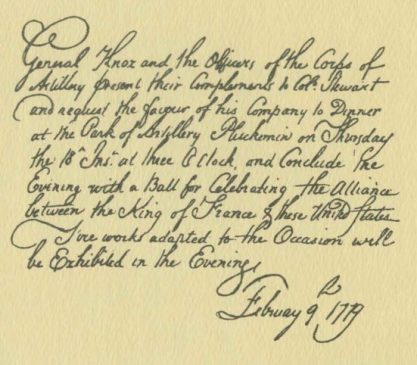 General Knox and the Officers of the Corps of
Artillery present their Complements to Col. Stewart
and request the favour of his Company to Dinner
at the Park of Artillery Pluckemin on Thursday
the 18th Ins. at three O Clock, and Conclude the
Evening with a Ball for Celebrating the Alliance
between the King of France & these United States
Fire works adapted to the Occasion will
be Exhibited in the Evening,
February 9th 1779